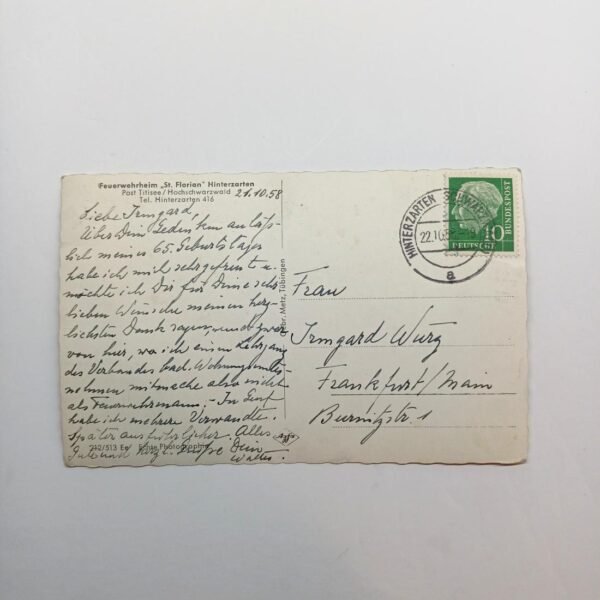 Feuerwehrheim „St. Florian" Hinterzarten
Post Titisee/Hochschwarzwald
Tel. Hinterzarten 416
21.10.58
Liebe Irmgard,
Über Dein Gedenken anläss-
lich meines 65. Geburtstages
habe ich mich sehr gefreut u.
möchte ich Dir für Deine sehr
lieben Wünsche meinen herz-
lichsten Dank sagen, und zwar
von hier, wo ich einen Lehrgang
des Verbandes bad. Wohnungsunter-
nehmen mitmache also nicht
als Feuerwehrmann. - In
habe ich mehrere Verwandte.
Später ausführlicher. Alles
Gute und Grüße Dein
Walter.
212/513 Echte Photographie
Gebr. Metz, Tübingen
HINTERZARTEN
22.10.58
a
10
DEUTSCHE
BUNDESPOST
Frau
Irmgard Wurz
Frankfurt/Main
Burnitzstr. 1